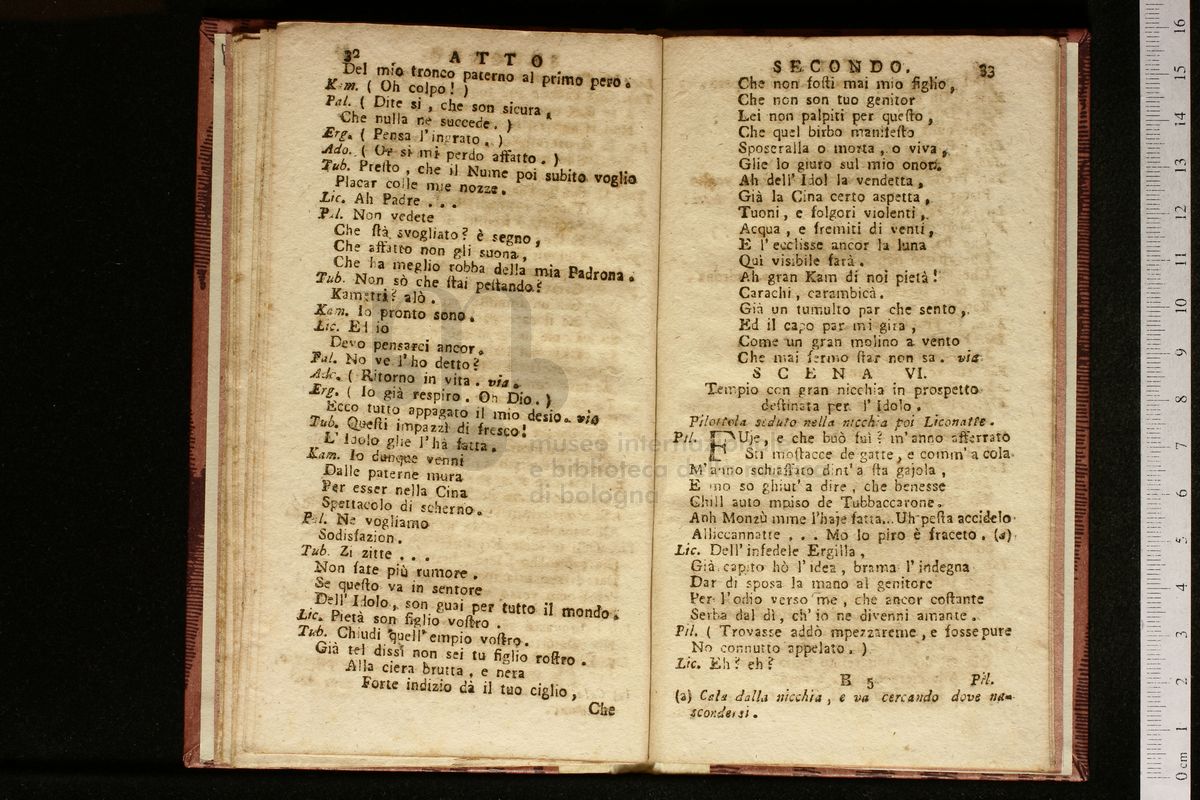 32 ATTO
Del mio tronco paterno al primo pero.
Kam. ( Oh colpo! )
Pal. ( Dite sì, che son sicura,
Che nulla ne succede. )
Erg. ( Pensa l'ingrato. )
Ado. ( Or sì mi perdo affatto. )
Tub. Presto, che il Nume poi subito voglio
Placar colle mie nozze.
Lic. Ah Padre . . .
Pal. Non vedete
Che stà svogliato? è segno,
Che affatto non gli suona,
Che ha meglio robba della mia Padrona.
Tub. Non sò che stai pestando?
Kametri? alò.
Kam. Io pronto sono.
Lic. Ed io
Devo pensarci ancor.
Pal. No ve l'ho detto?
Ado. ( Ritorno in vita. via.
Erg. ( Io già respiro. Oh Dio. )
Ecco tutto appagato il mio desio. via
Tub. Questi impazzì di fresco!
L'Idolo glie l'hà fatta.
Kam. Io dunque venni
Dalle paterne mura
Per esser nella Cina
Spettacolo di scherno.
Pal. Ne vogliamo
Sodisfazion.
Tub. Zi zitte . . .
Non fate più rumore.
Se questo va in sentore
Dell'Idolo, son guai per tutto il mondo.
Lic. Pietà son figlio vostro.
Tub. Chiudi quell'empio vostro.
Già tel dissi non sei tu figlio rostro.
Alla ciera brutta, e nera
Forte indizio dà il tuo ciglio,
Che
SECONDO. 33
Che non fosti mai mio figlio,
Che non son tuo genitor
Lei non palpiti per questo,
Che quel birbo manifesto
Sposeralla o morta, o viva,
Glie lo giuro sul mio onor.
Ah dell'Idol la vendetta,
Già la Cina certo aspetta,
Tuoni, e folgori violenti,
Acqua, e fremiti di venti,
E l'ecclisse ancor la luna
Qui visibile farà.
Ah gran Kam di noi pietà!
Carachi, carambicà.
Già un tumulto par che sento,
Ed il capo par mi gira,
Come un gran molino a vento
Che mai fermo star non sa. via
SCENA VI.
Tempio con gran nicchia in prospetto
destinata per l'Idolo.
Pilottola seduto nella nicchia poi Liconatte.
Pil. FUje, e che buò fuì? m'anno afferrato
Sti mostacce de gatte, e comm'a cola
M'anno schiaffato dint'a sta gajola,
E mo so ghiut'a dire, che benesse
Chill auto mpiso de Tubbaccarone.
Anh Monzù mme l'haje fatta...Uh pesta accidelo
Alliccannatte . . . Mo lo piro è fraceto. (a)
Lic. Dell'infedele Ergilla,
Già capito hò l'idea, brama l'indegna
Dar di sposa la mano al genitore
Per l'odio verso me, che ancor costante
Serba dal dì, ch'io ne divenni amante.
Pil. ( Trovasse addò mpezzareme, e fosse pure
No connutto appelato. )
Lic. Eh? eh?
B 5 Pil.
(a) Cala dalla nicchia, e va cercando dove na-
scondersi.
museo internazionale
e biblioteca della musica
di bologna
0 cm 1 2 3 4 5 6 7 8 9 10 11 12 13 14 15 16